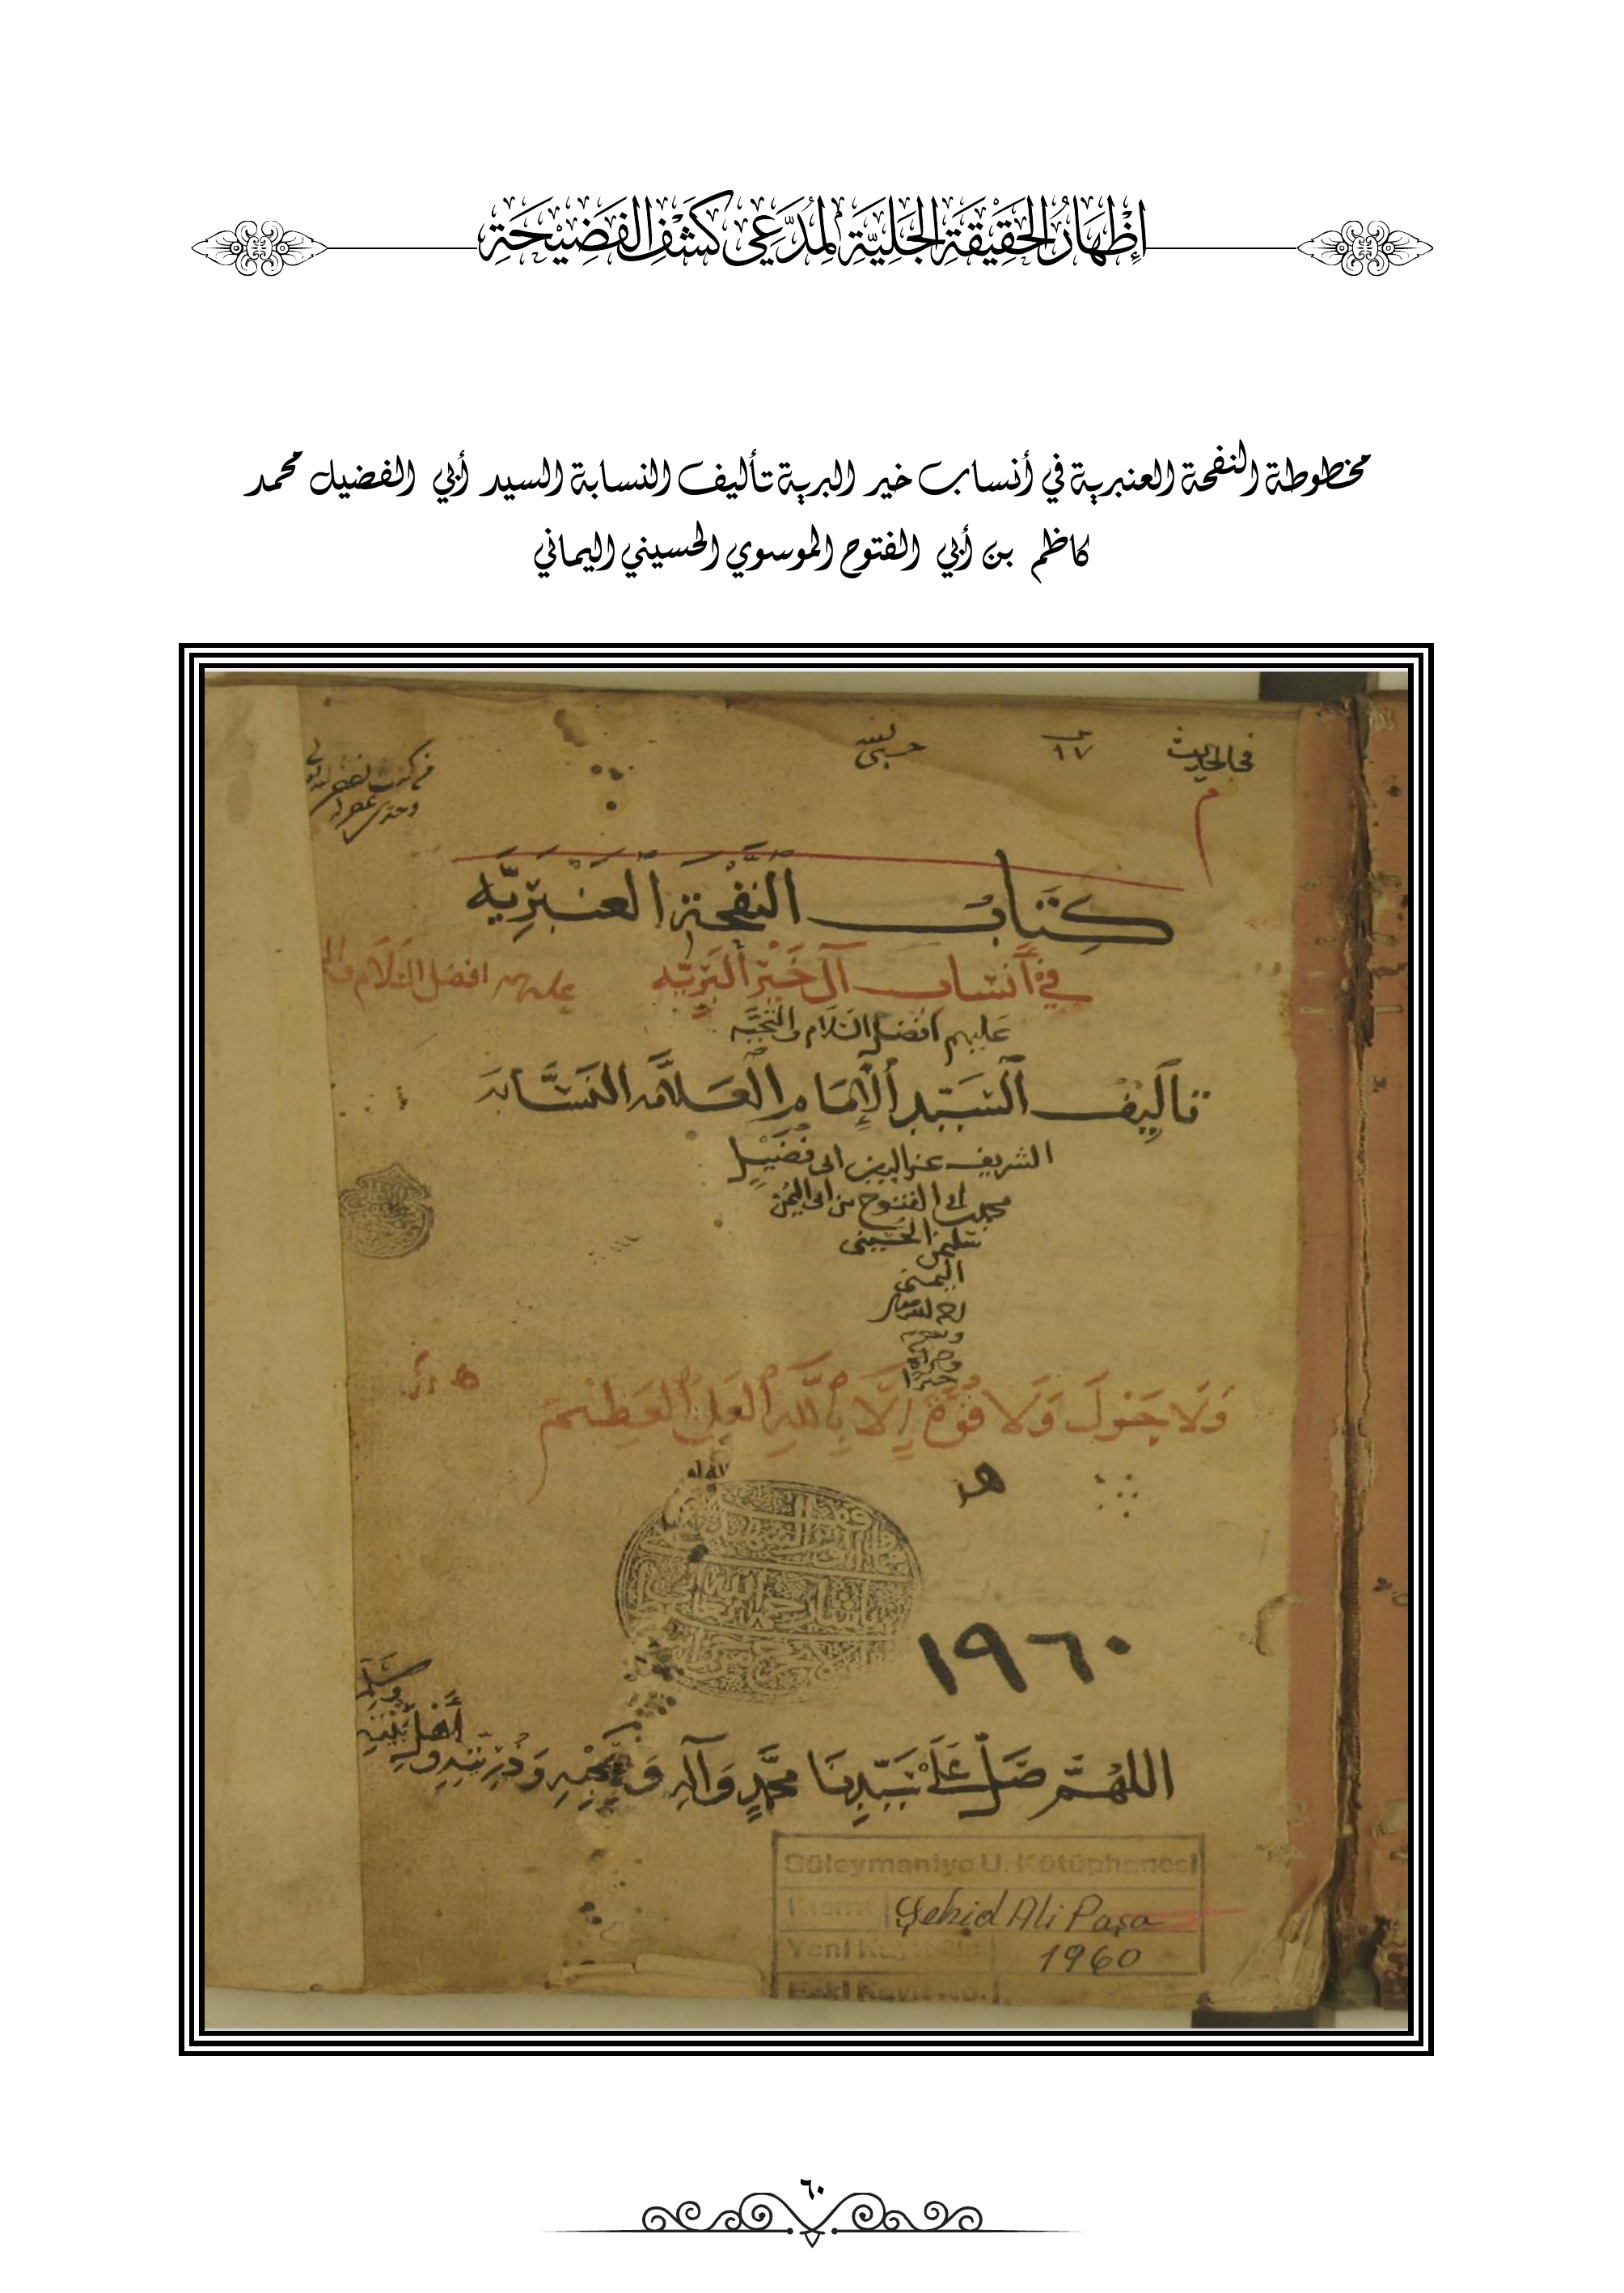 إِظْهَارُ الْحَقِيْقَةِ الْجَلِيَّةِ لِمُدَّعِي كَشْفِ الْفَضِيْحَةِ
مخطوطة النفحة العنبرية في أنساب خير البرية تأليف النسابة السيد أبي الفضيل محمد
كاظم بن أبي الفتوح الموسوي الحسيني اليماني
في الحديث
١٧
كتاب النفحة العنبريه
في أنساب آل خير البريه
عليهم افضل السلام وال
عليهم افضل السلام والتحيه
تأليف السيد الإمام العلامه النسابه
الشريف عز الدين ابى فضيل
محمد بن ابى الفتوح بن ابى اليمن
سليمن الحسيني
اليمني
ولا حول ولا قوة إلا بالله العلي العظيم
١٩٦٠
اللهم صل على سيدنا محمد وآله وصحبه وذريته و
أهل بيته
وسلم
Süleymaniye U. Kütüphanesi
Kısmı Şehid Ali Paşa
Yeni 1960
Eski Kayıt No.
٦٠